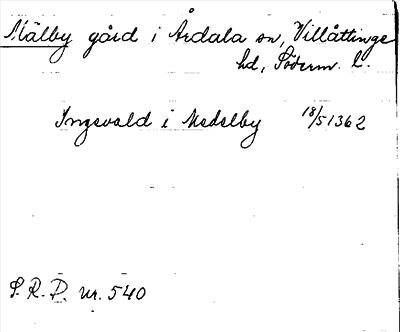 Mälby gård i Årdala sn, Villåttinge
hd, Söderm. L.
Ingevald i Medelby 18/5 1362
S. R. P. nr. 540